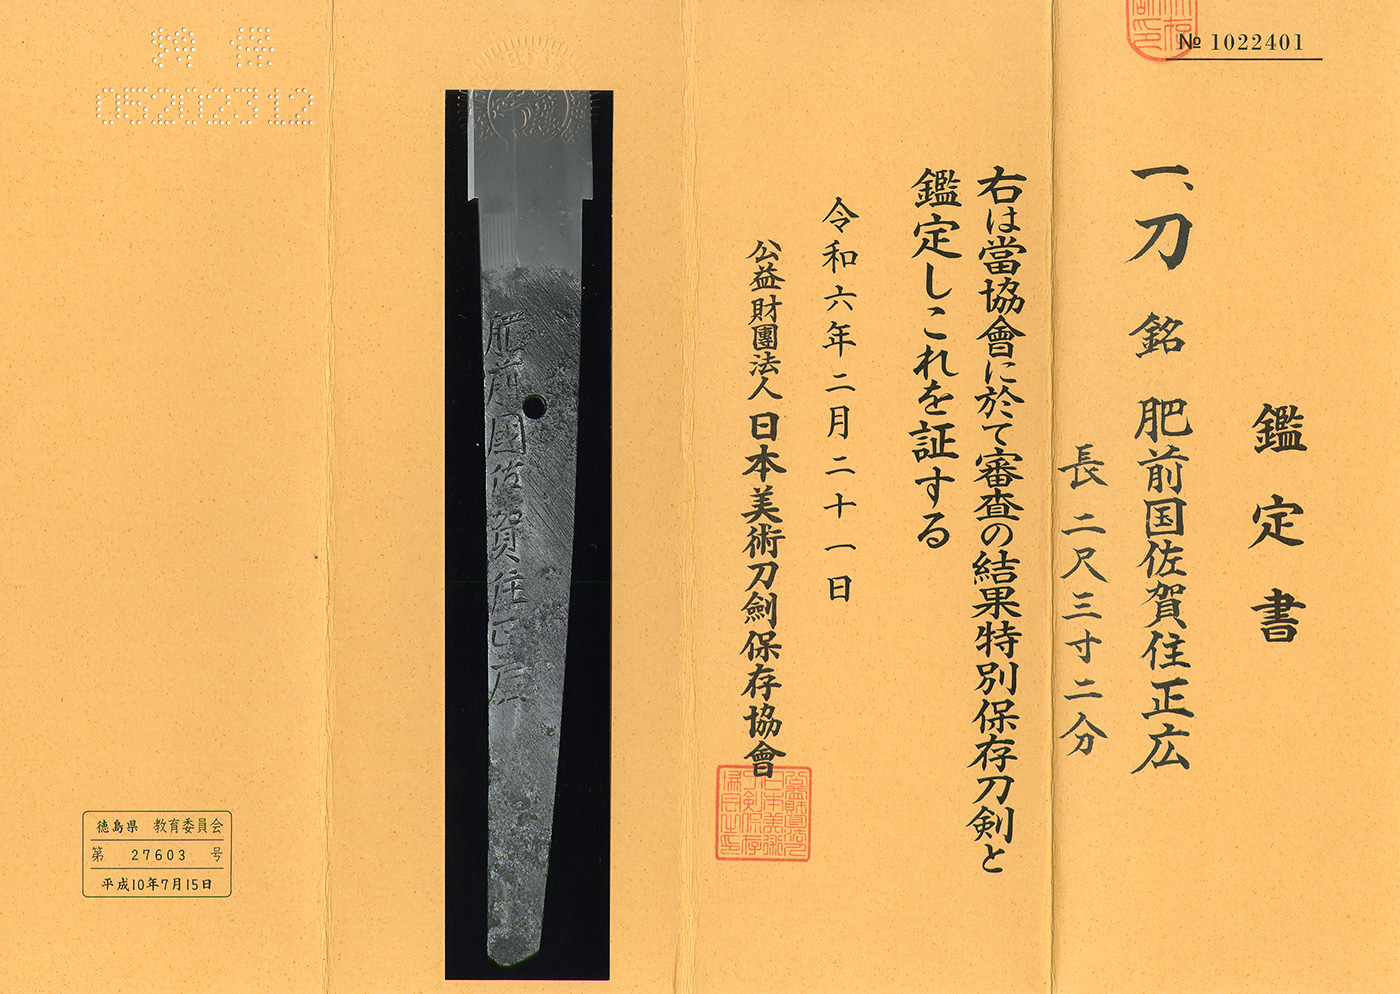 № 1022401
鑑定書
一、刀 銘 肥前国佐賀住正広
長 二尺三寸二分
右は當協會に於て審査の結果特別保存刀剣と
鑑定しこれを証する
令和六年二月二十一日
公益財團法人 日本美術刀劍保存協會
肥前國佐賀住正広
特 保
05202312
徳島県 教育委員会
第 27603 号
平成10年7月15日